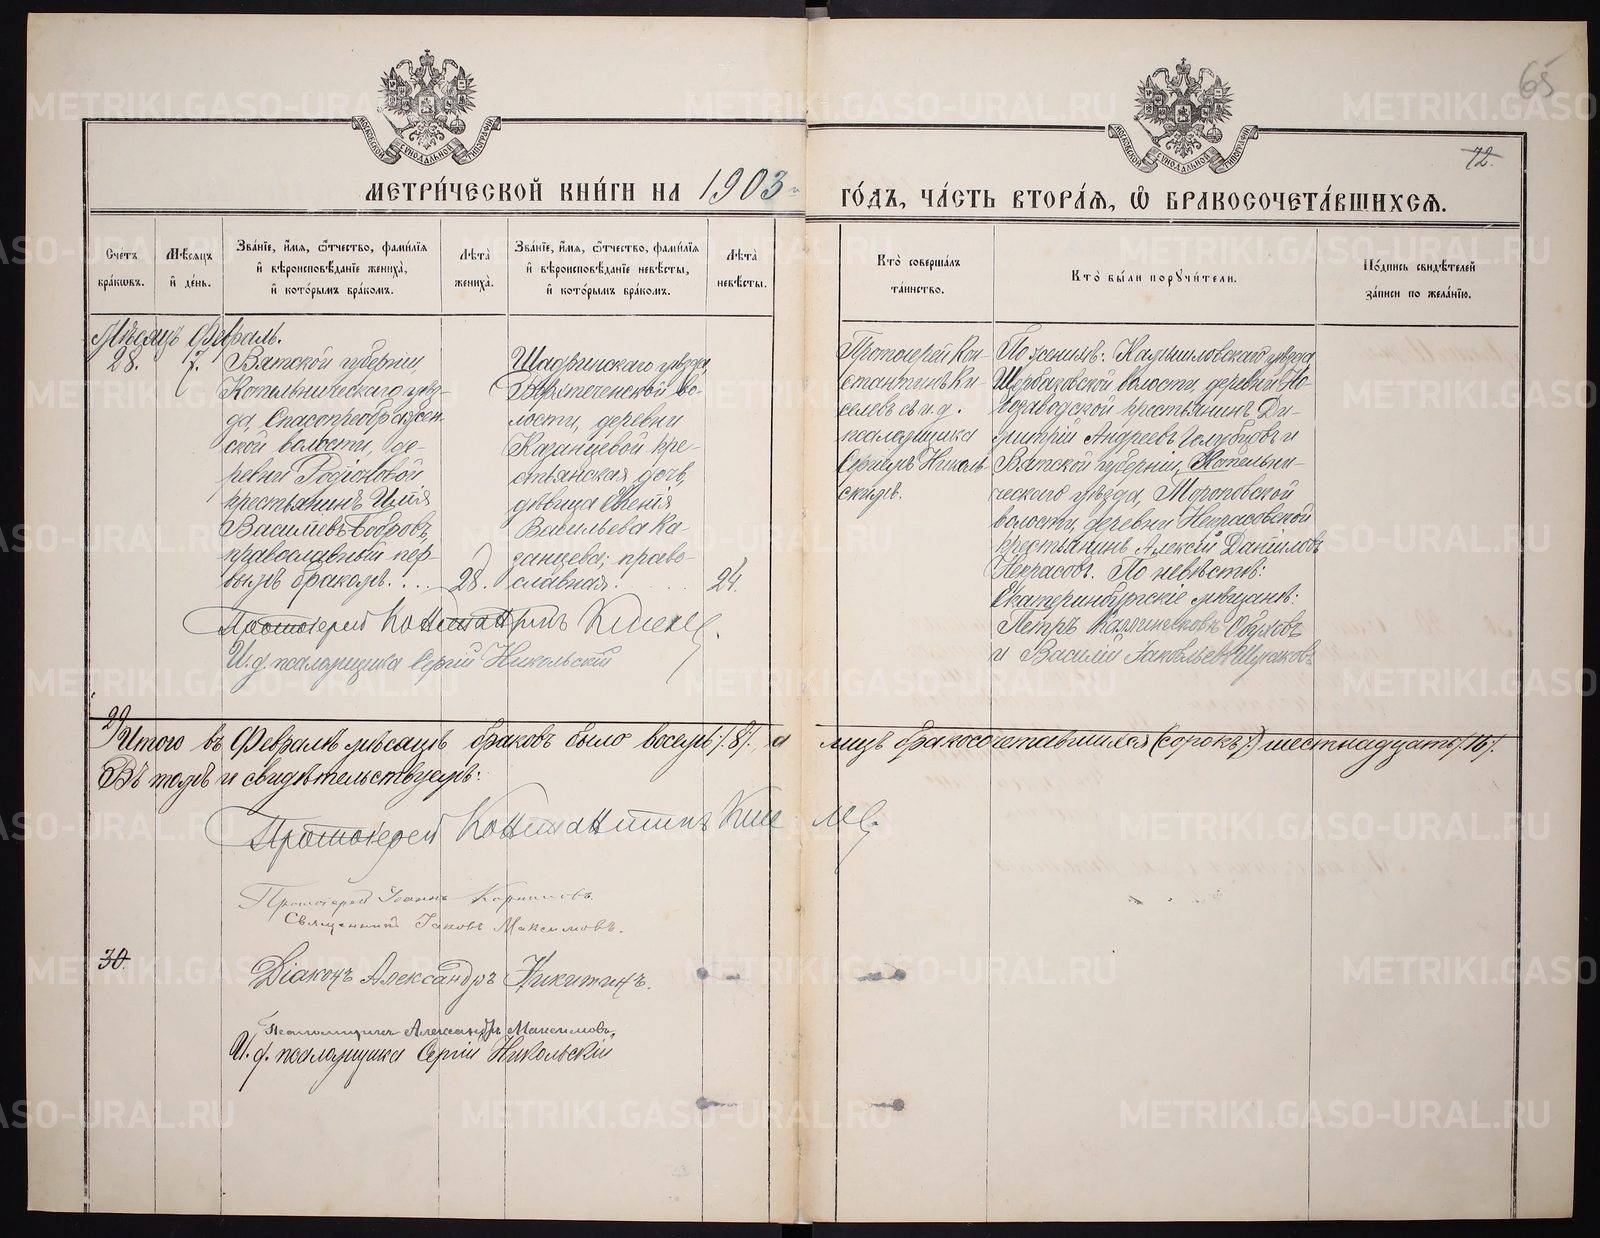 65
72.
МЕТРИ́ЧЕСКОЙ КНИ́ГИ НА 1903 ГО́ДЪ, ЧА́СТЬ ВТОРА́Я, Ѡ БРАКОСОЧЕТА́ВШИХСЯ.
Сче́тъ бра́кωвъ.
Мѣ́сяцъ и́ де́нь.
Зва́нїе, и́мя, ѻ́тчество, фами́лїя и́ вѣроисповѣ́данїе жениха̀, и́ кото́рымъ бра́комъ.
Лѣта̀ жениха̀.
Зва́нїе, и́мя, ѻ́тчество, фами́лїя и́ вѣроисповѣ́данїе невѣ́сты, и́ кото́рымъ бра́комъ.
Лѣта̀ невѣ́сты.
Кто̀ соверша́лъ та́инство.
Кто̀ бы́ли порꙋчи́тели.
По́дпись свидѣ́телей за́писи по жела́нїю.
Мѣсяцъ Февраль.
28.
7.
Вятской губерніи,
Котельническаго уѣз-
да, Спасопреображен-
ской волости, де-
ревни Родіоновой
крестьянинъ Илія
Василіевъ Бобровъ,
православный пер-
вымъ бракомъ. . . .
28.
Шадринскаго уѣзда,
во-
лости, деревни
Казанцевой кре-
стьянская дочь,
дѣвица Евгенія
Васильева Ка-
занцева; право-
славная.
24.
Протоіерей Кон-
стантинъ Ки-
селевъ съ и. д.
псаломщика
Сергіемъ Николь
скимъ.
По женихѣ: Камышловскаго уѣзда
Щербаковской волости, деревни Но-
возаводской крестьянинъ Ди-
митрій Андреевъ Голубцовъ и
Вятской губерніи, Котельни-
ческаго уѣзда,
волости, деревни Некрасовской
крестьянинъ Алексій Даніиловъ
Некрасовъ. По невѣстѣ:
Екатеринбургскіе мѣщане:
Петръ Обуховъ
и Василій Іаковлевъ
Протоіерей Константинъ Киселев.
И. д. псаломщика Сергій Никольскій
29
Итого въ Февралѣ мѣсяцѣ браковъ было восемь /. 8 /., а лицъ бракосочетавшихся (сорокъ /.) шестнадцать /. 16 /.
Въ томъ и свидѣтельствуемъ:
Протоіерей Константинъ Киселев.
Протоіерей Іоаннъ
Священникъ Іаковъ Максимовъ.
30.
Діаконъ Александръ Никитинъ.
Псаломщикъ Александръ Максимовъ.
И. д. псаломщика Сергій Никольскій
METRIKI.GASO-URAL.RU